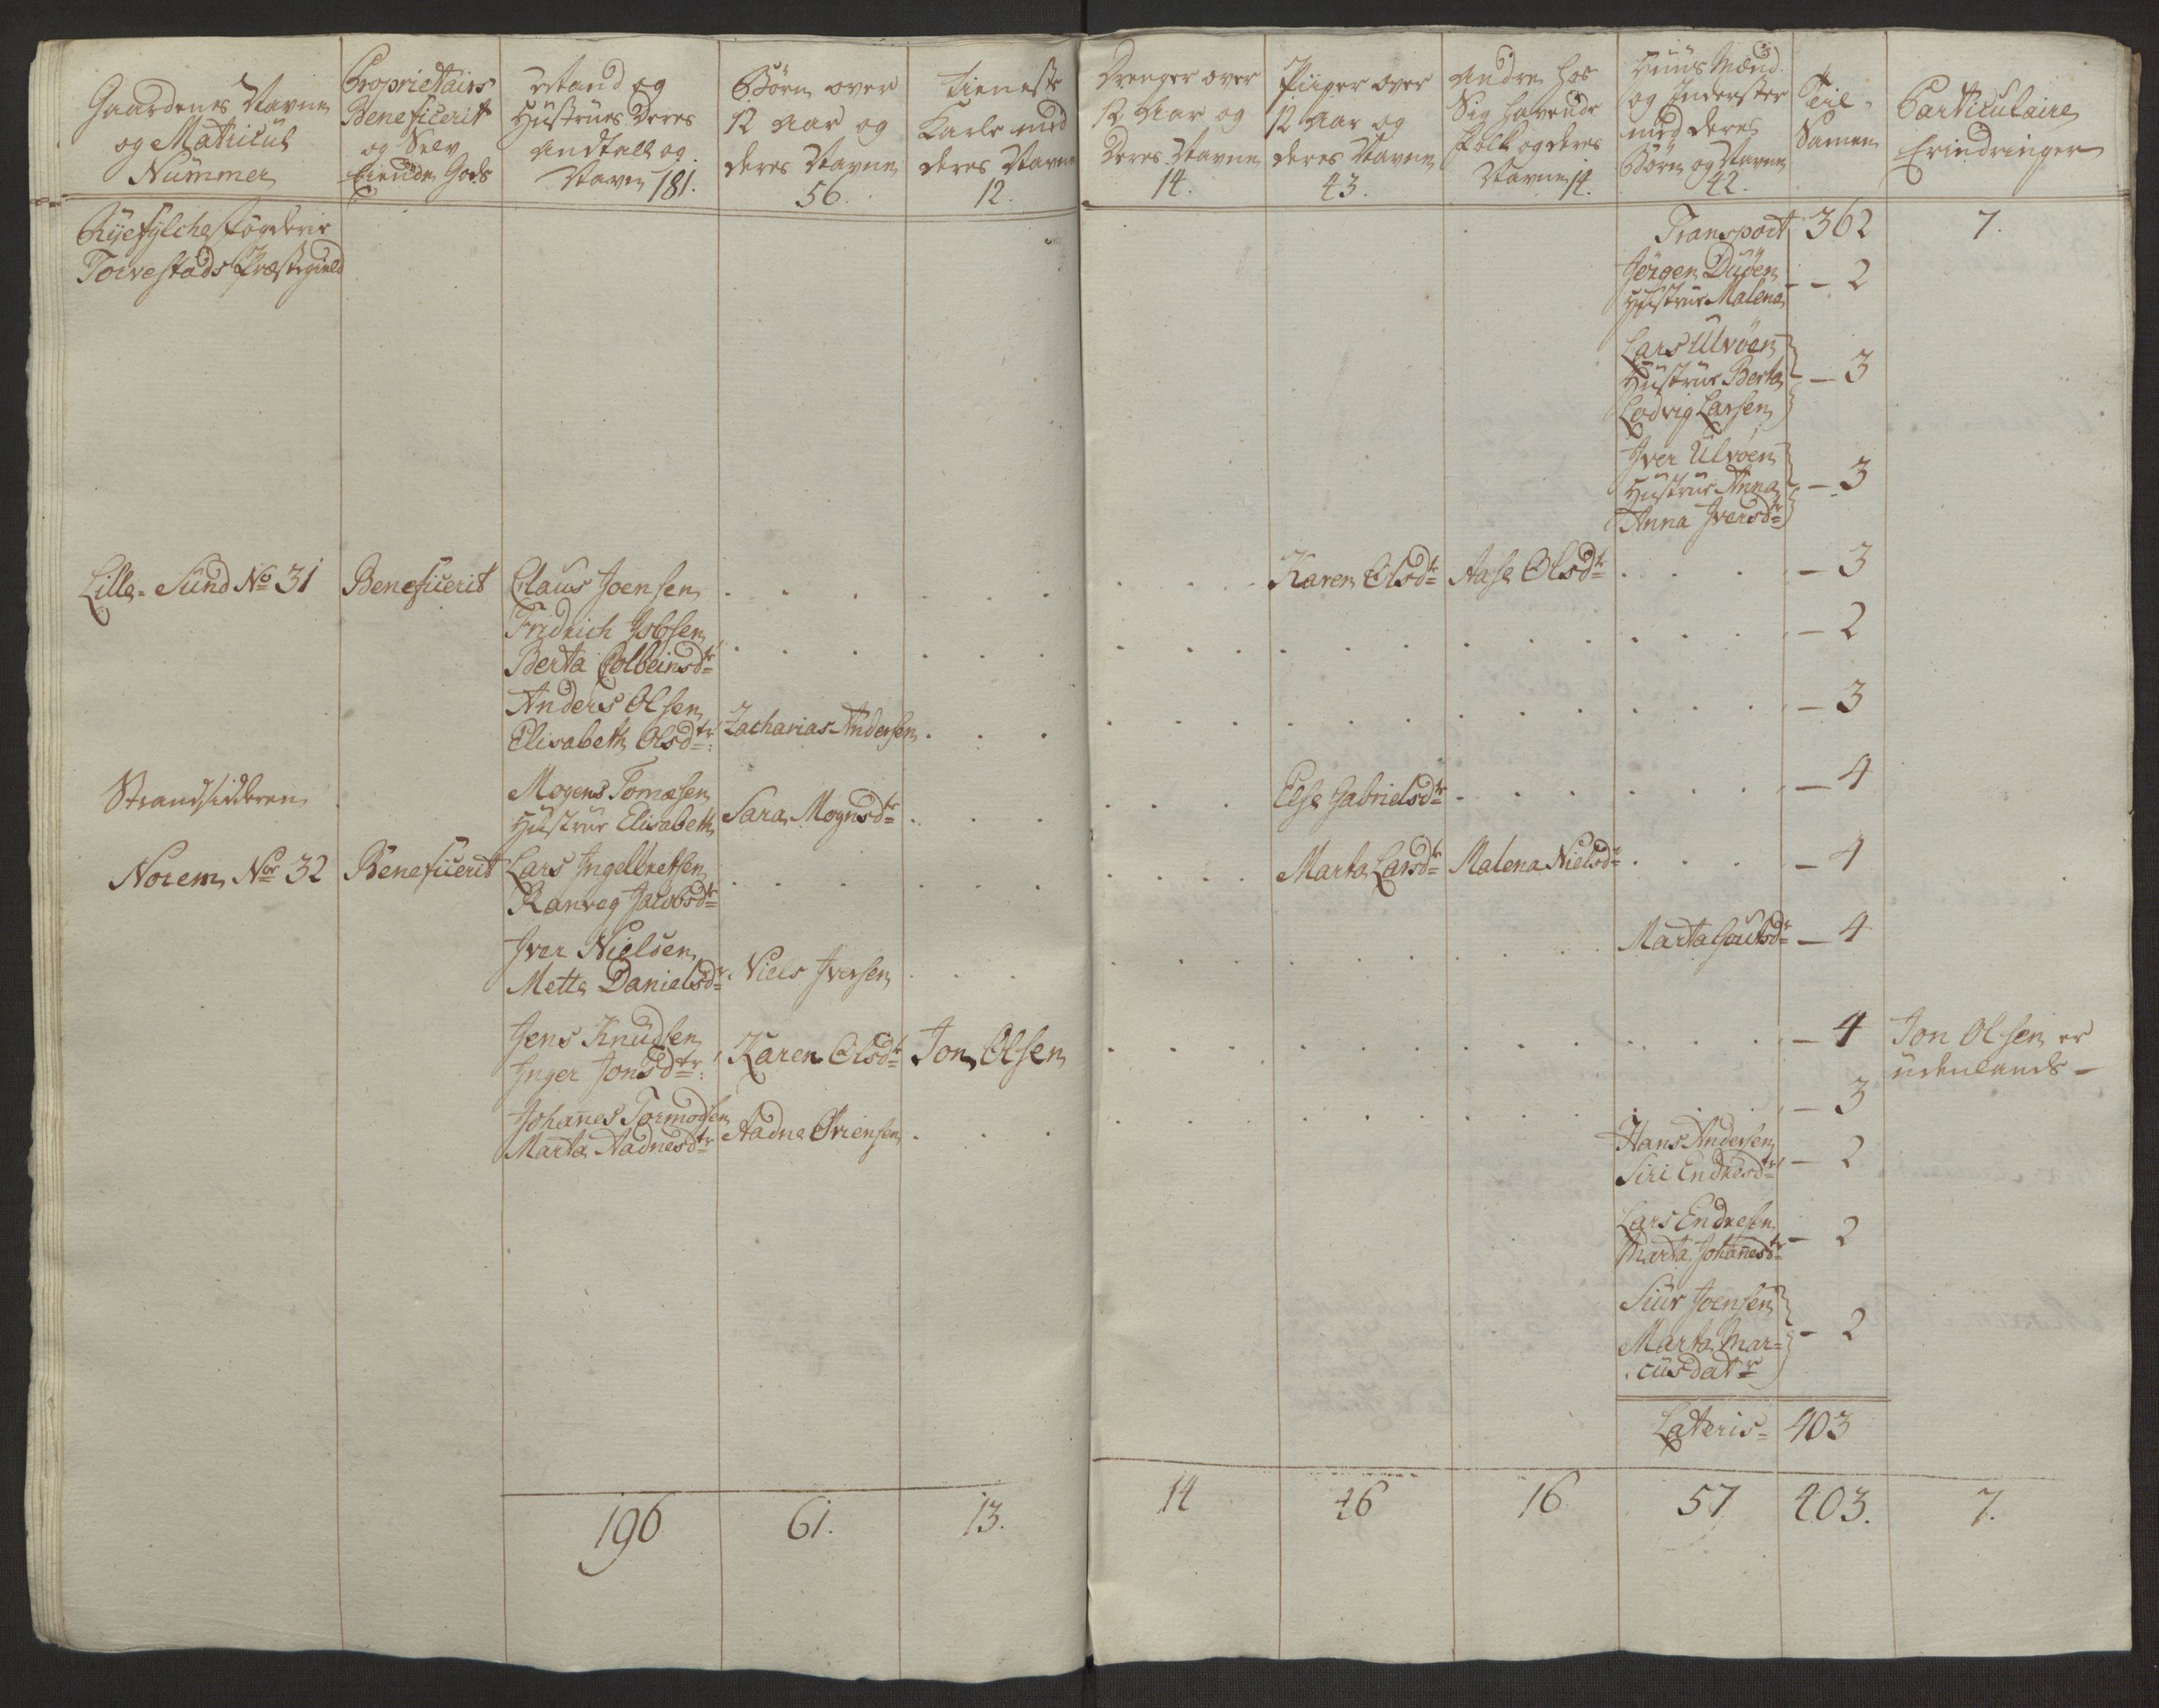 Gaardenes Navne
og Matricul
Nummer
Proprietairs
Beneficerit
og Selv
Eiende Gods
Stand og
Hustrues Deres
Andtall og
Navn 181.
Børn over
12 Aar og
deres Navne
56.
Tieneste
Karle med
deres Navne
12.
Drenger over
12 Aar og
Deres Navne
14.
Piiger over
12 Aar og
deres Navne
43.
Andre hos
Sig havende
folk og deres
Navne 14.
Huus Mænd
og Inderster
med deres
Børn og Navne
42.
Teil
Samen
Particulaire
Erindringer
Ryefylche fogderie
Torvestads Præstegield
Transport 362 7.
Jørgen Duøen
Hustrue Malena - - 2
Lars Ulvøen
Hustrue Berta - 3
Lodvig Larsen
Iver Ulvøen
Hustrue Anna - 3
Anna Iversdtr
Lille-Sund No 31 Beneficerit Claus Joensen . . . Karen Olsdtr Aase Olsdtr . . . - 3
Fridrich Jobsen
Berta Colbeinsdtr . . . - 2
Anders Olsen
Elisabeth Olsdtr: Zacharias Andersen . . . - 3
Strandsidderen Mogens Tomæsen
Hustrue Elisabeth Sara Mognsdtr . . . Else Gabrielsdtr . . . - 4
Norem Nor 32 Beneficerit Lars Ingelbretsen
Ranveg Jacobsdtr . . . Marta Larsdtr Malena Nielsdr . . . - 4
Iver Nielsen
Mette Danielsdr. Niels Iversen . . . Marta Gautsdr - 4
Jens Knudsen
Inger Jonsdtr: Karen Olsdtr Jon Olsen . . . - 4 Jon Olsen er
udenlands -
Johanes Tormodsen
Marta Aadnesdtr Aadne Øriensen . . . - 3
Hans Andersen
Siri Endresdtr - 2
Lars Endresen
Marta Johanesdtr - 2
Siur Joensen
Marta Mar=
cusdatr - 2
Lateris - 403
196 61. 13. 14 46 16 57 403. 7.